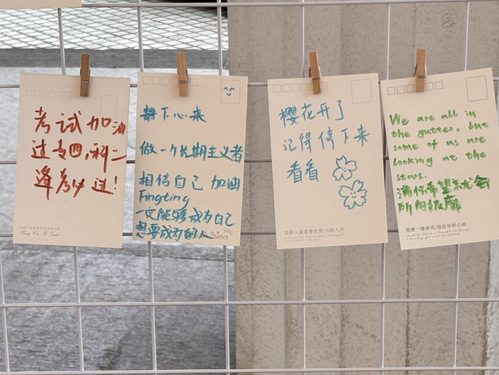 考试加油
过专四,科二
逢考必过!
静下心来
做一个长期主义者
相信自己 加油
Fingting
一定能够成为自己
想要成为的人
樱花开了
记得停下来
看看
We are all in
the gutter, but
some of us are
looking at the
stars.
满怀希望就会
所向披靡